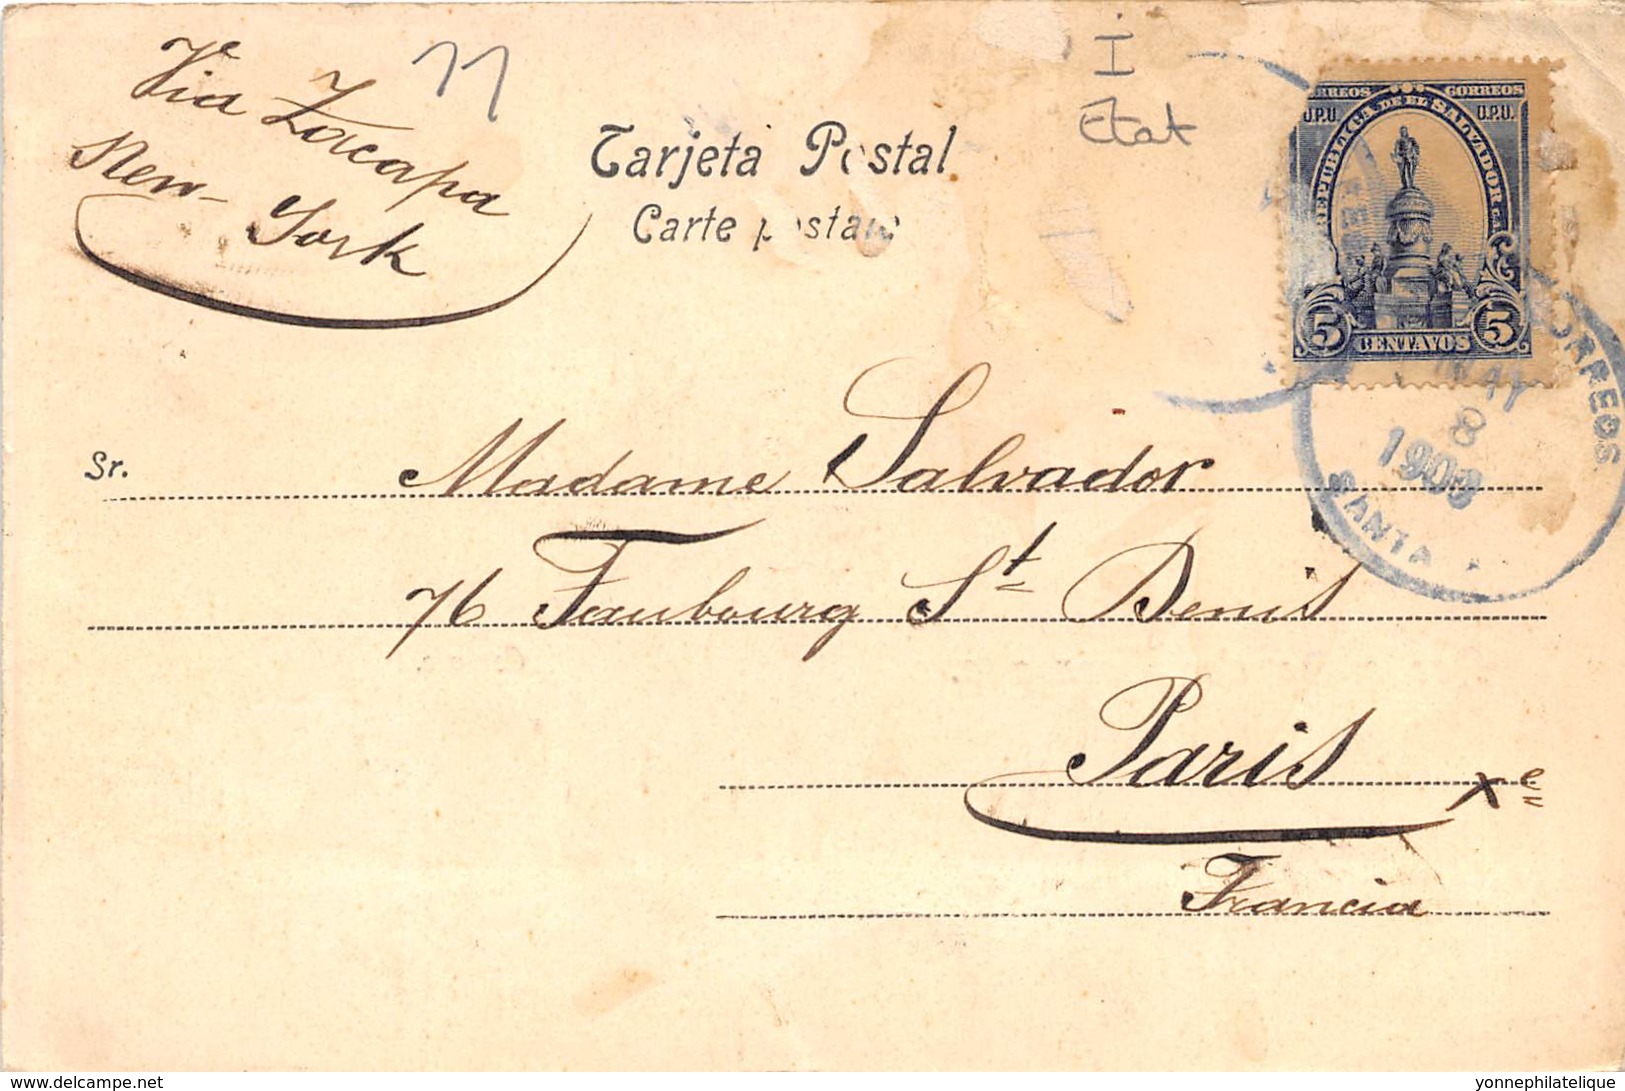 Via Zacapa
New-York
11
I
Etat
Tarjeta Postal
Carte postale
CORREOS CORREOS
U.P.U. U.P.U.
REPUBLICA DE EL SALVADOR C.A.
5 CENTAVOS 5
CORREOS
MAY
8
1903
SANTA
Sr. Madame Salvador
76 Faubourg St Denis
Paris
Xe
Francia
www.delcampe.net
yonnephilatelique